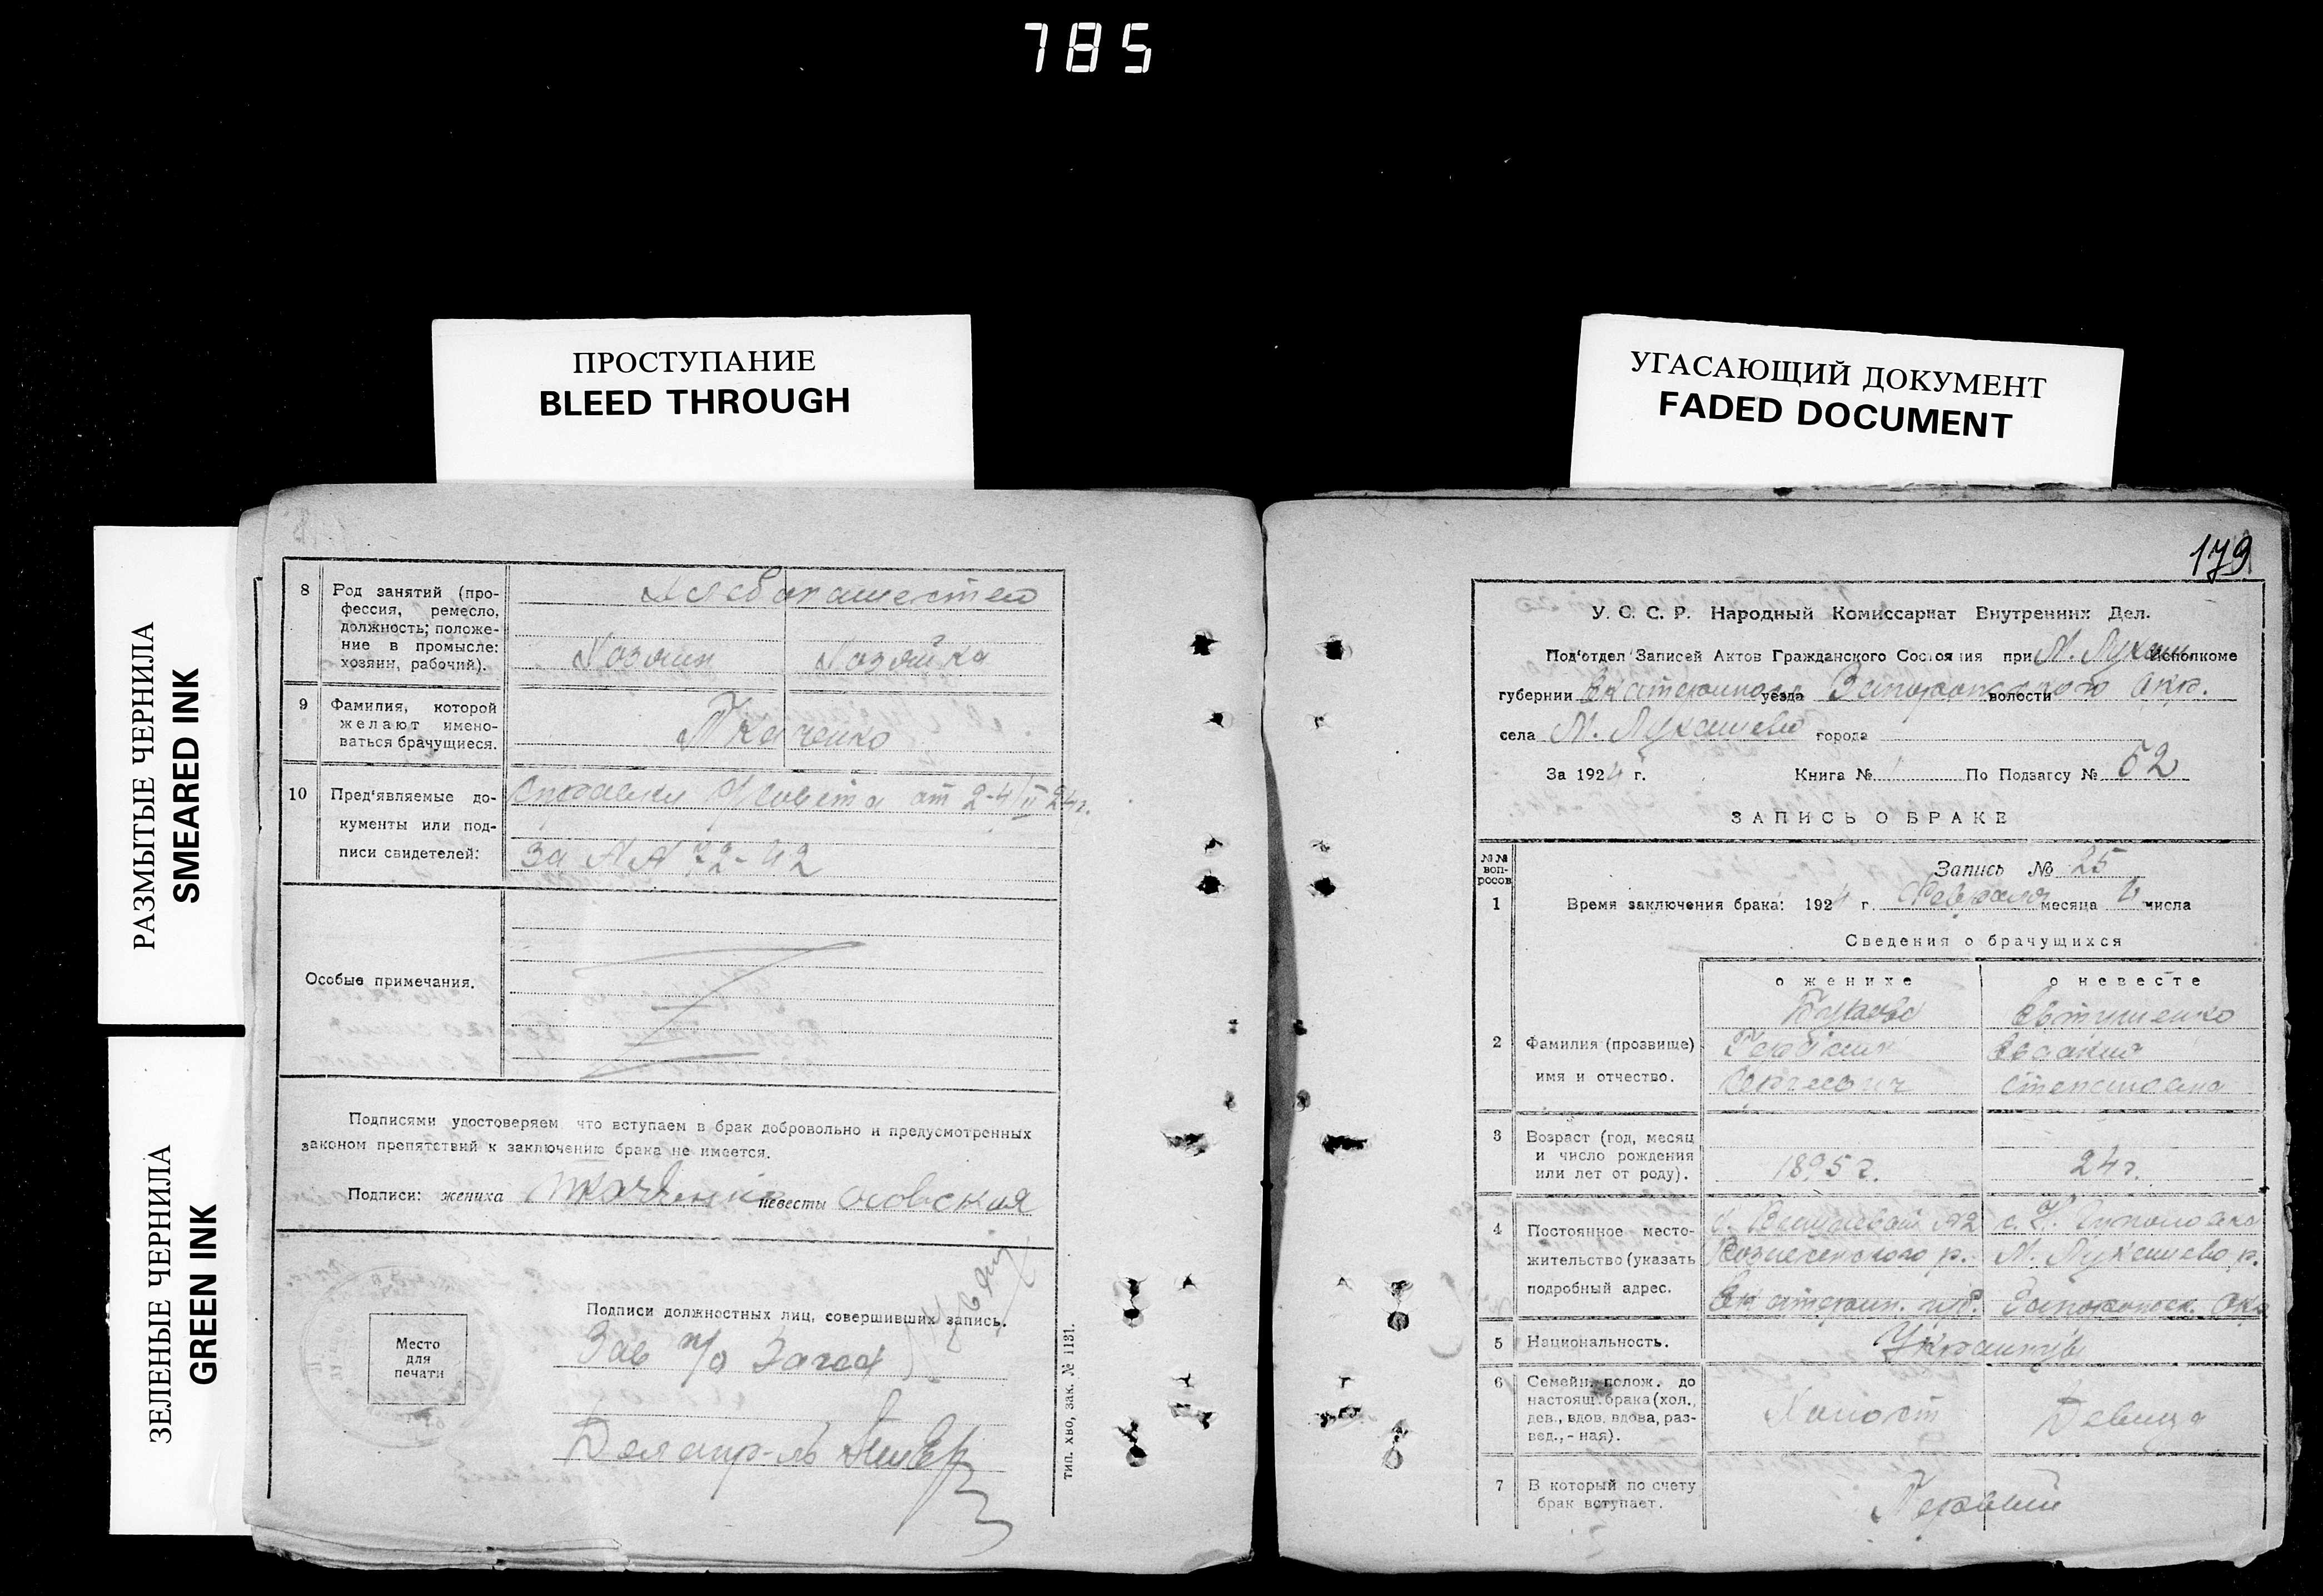 785
ПРОСТУПАНИЕ
BLEED THROUGH
УГАСАЮЩИЙ ДОКУМЕНТ
FADED DOCUMENT
РАЗМЫТЫЕ ЧЕРНИЛА
SMEARED INK
ЗЕЛЕНЫЕ ЧЕРНИЛА
GREEN INK
8 Род занятий (про-
фессия, ремесло,
должность; положе-
ние в промысле:
хозяин, рабочий).
Хлебопашество
Хозяин Хозяйка
9 Фамилия, которой
желают имено-
ваться брачущиеся.
Ткаченко
10 Пред'являемые до-
кументы или под-
писи свидетелей:
от 2-4/II 24г.
За №№ 72-42
Особые примечания.
Подписями удостоверяем что вступаем в брак добровольно и предусмотренных
законом препятствий к заключению брака не имеется.
Подписи: жениха Ткаченко невесты
Подписи должностных лиц, совершивших запись.
Зав п/о Загса
Место
для
печати
Делопр-ль
тип. хво, зак. № 1131.
179
У. С. С. Р. Народный Комиссариат Внутренних Дел.
Под'отдел Записей Актов Гражданского Состояния при М. Лукаш. исполкоме
губернии Екатеринос. уезда Запорожского волости окр.
села М. Лукашево города
За 1924 г. Книга № По Подзагсу № 62
ЗАПИСЬ О БРАКЕ
№№
воп-
росов
Запись № 25
1 Время заключения брака: 1924 г. Февраля месяца числа
Сведения о брачущихся
о женихе о невесте
2 Фамилия (прозвище)
имя и отчество.
Евтушенко
Сергеевич
Степановна
3 Возраст (год, месяц
и число рождения
или лет от роду).
1895 г. 24 г.
4 Постоянное место-
жительство (указать
подробный адрес.
Вознесенского р. М. Лукашево р.
Екатерин. губ. Запорожск. Окр
5 Национальность.
Украинцы
6 Семейн. полож. до
настоящ. брака (хол.,
дев., вдов, вдова, раз-
вед., - ная).
Холост Девица
7 В который по счету
брак вступает.
Первый